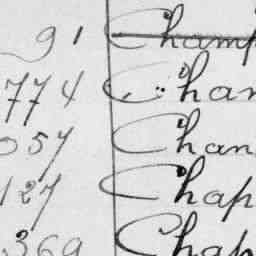 91 Champ
774 Chan
057 Chan
127 Chap
369 Chap